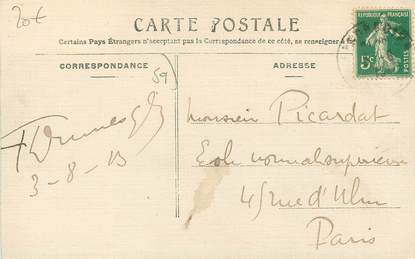 20€
CARTE POSTALE
Certains Pays Étrangers n'acceptant pas la Correspondance de ce côté, se renseigner à
CORRESPONDANCE
ADRESSE
59
REPUBLIQUE FRANÇAISE
5c
POSTES
Monsieur Picardat
Ecole normal superieure
45 rue d'Ulm
Paris
3-8-13